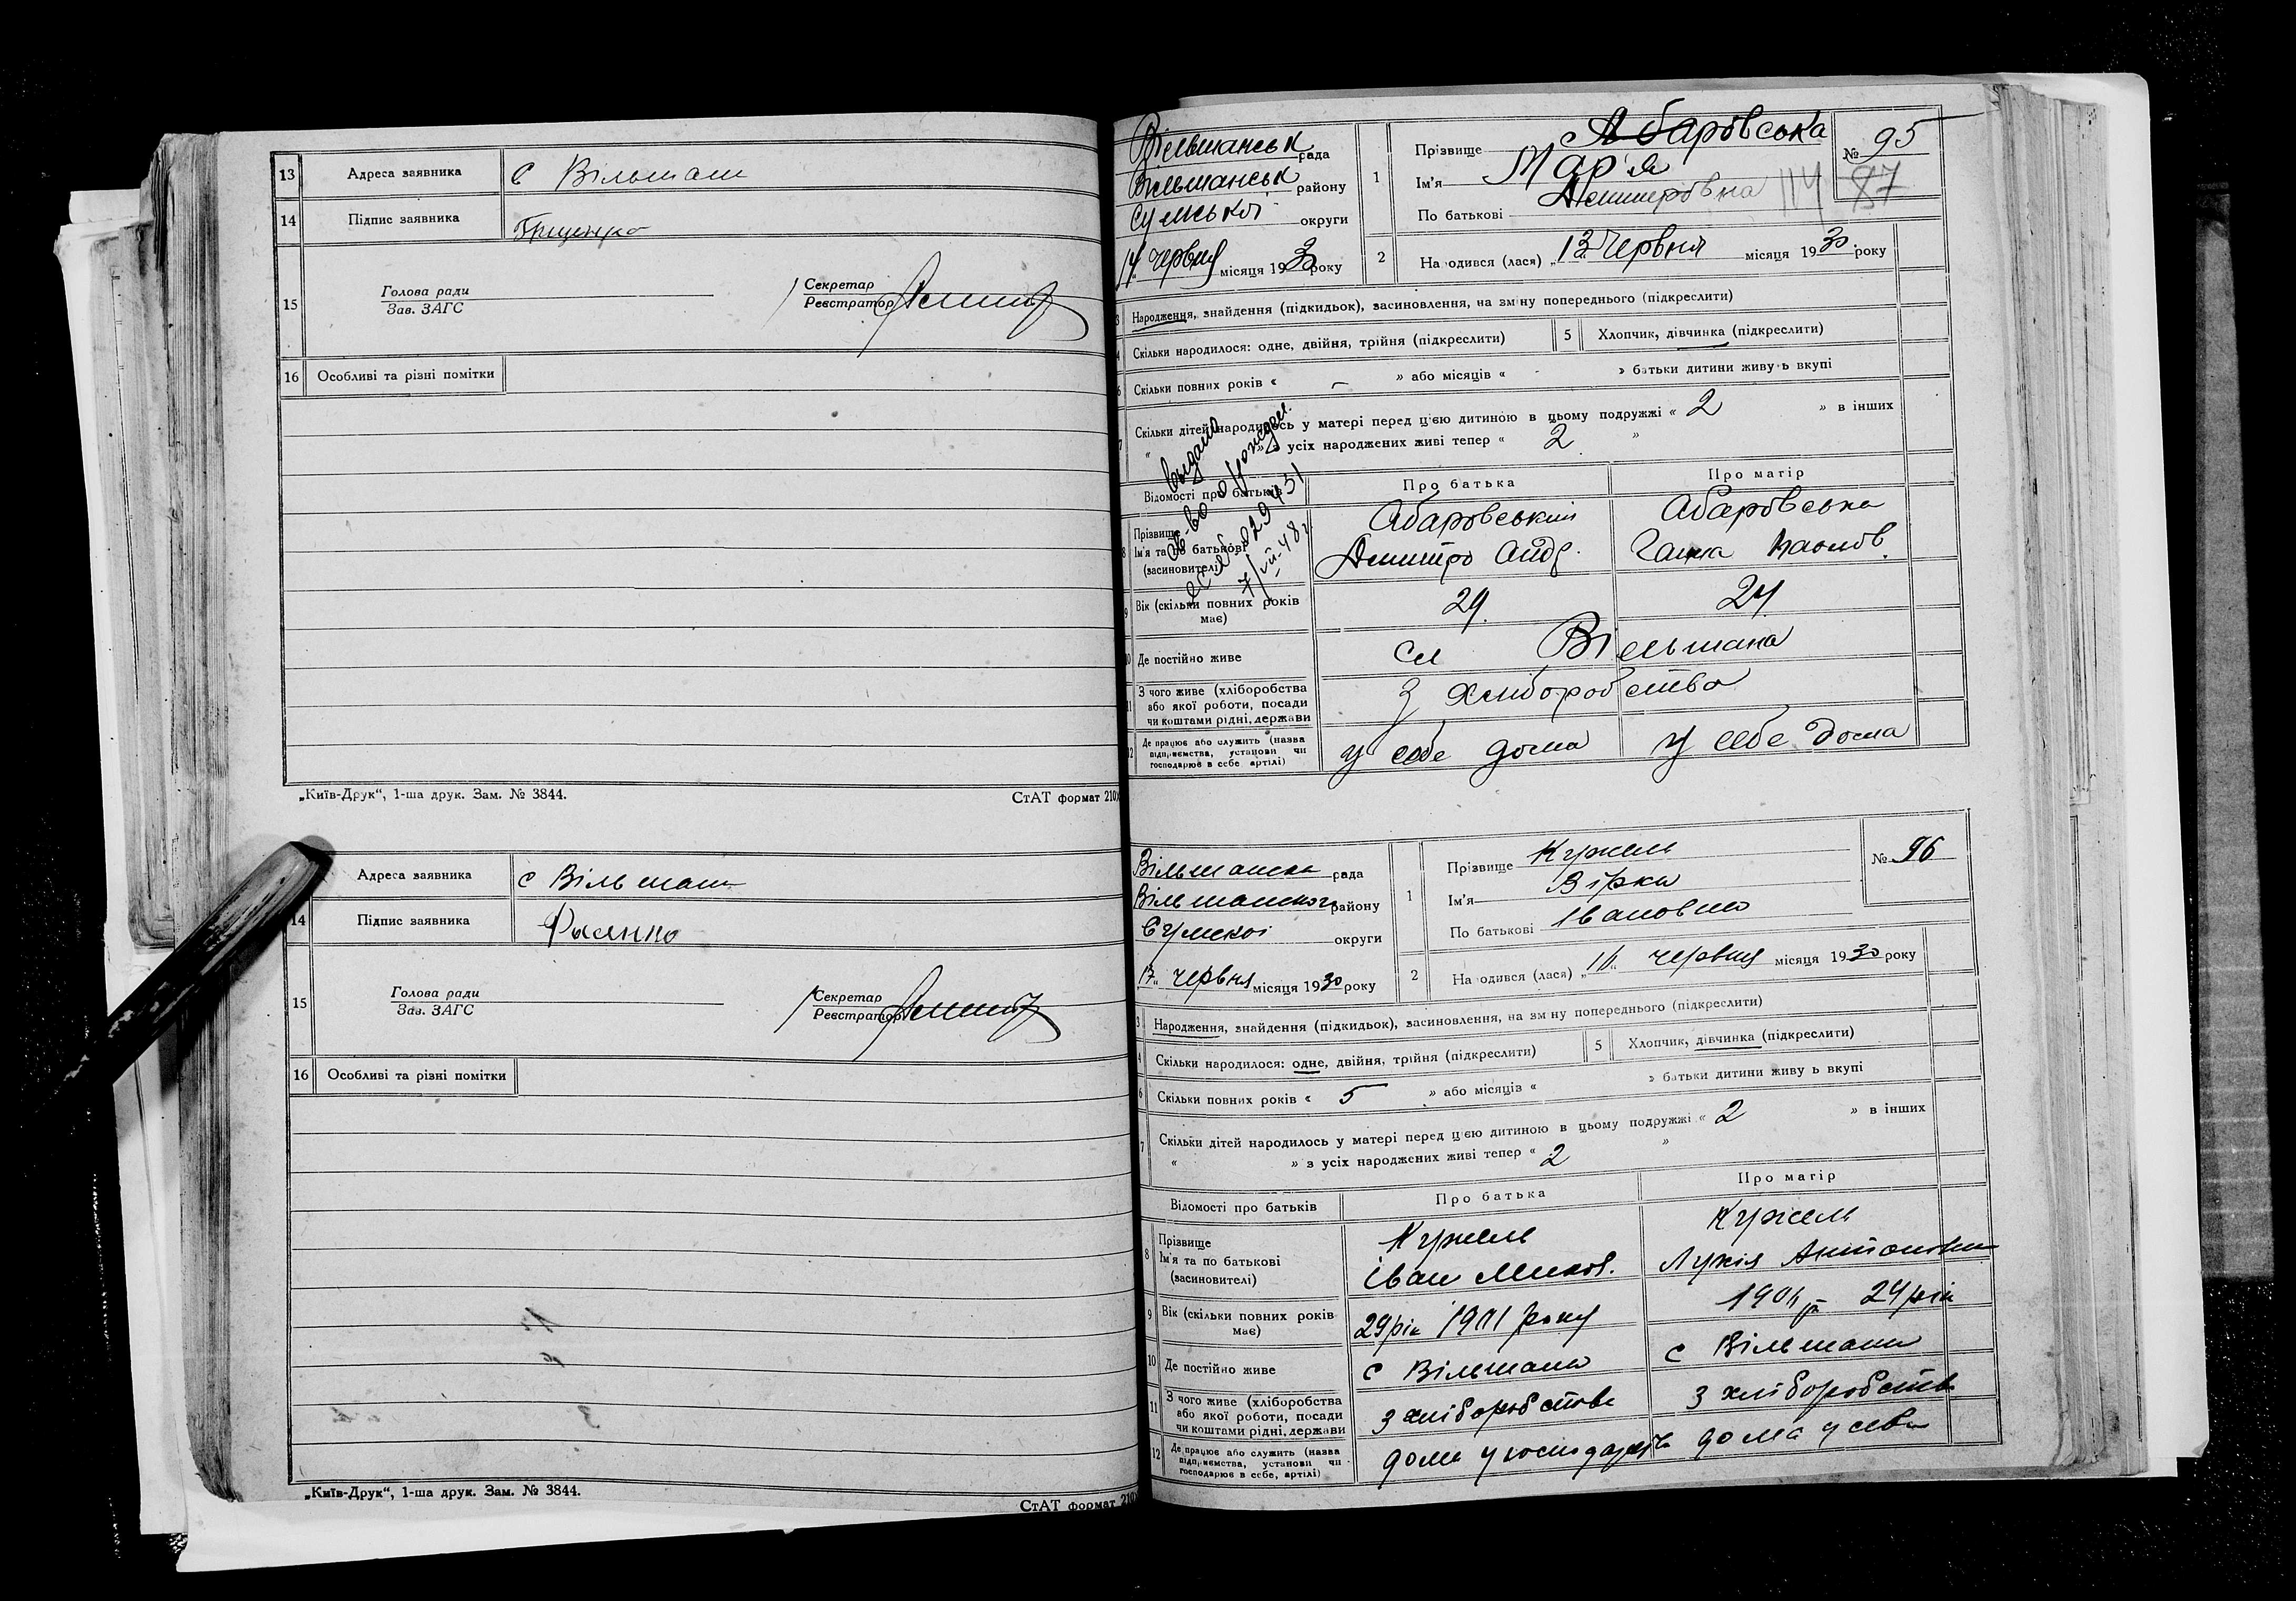 13 Адреса заявника с Вільшани
14 Підпис заявника Грищенко
15 Голова ради
Зав. ЗАГС
Секретар
Реєстратор
16 Особливі та різні помітки
„Київ-Друк“, 1-ша друк. Зам. № 3844.
СтАТ формат 210
Адреса заявника с Вільшани
14 Підпис заявника
15 Голова ради
Зав. ЗАГС
Секретар
Реєстратор
16 Особливі та різні помітки
„Київ-Друк“, 1-ша друк. Зам. № 3844.
СтАТ формат 210
Вільшанськ рада
Вільшанськ району
Сумської округи
14 Червня місяця 1930 року
1 Прізвище Абаровська
Ім'я Мар'я
По батькові Дмитровна
№ 95
114 87
2 На одився (лася) „13 Червня місяця 1930 року
3 Народження, знайдення (підкидьок), засиновлення, на зміну попереднього (підкреслити)
4 Скільки народилося: одне, двійня, трійня (підкреслити) 5 Хлопчик, дівчинка (підкреслити)
6 Скільки повних років « – » або місяців « - » батьки дитини живу ь вкупі
7 Скільки дітей народилось у матері перед цією дитиною в цьому подружжі « 2 » в інших
« » з усіх народжених живі тепер « 2 »
выдано
св-во о рожден.
829451
7/VII-48 г
Відомості про батьків Про батька Про матір
8 Прізвище
Ім'я та по батькові
(засиновителі)
Абаровський
Дмитро Андр.
Абаровська
Ганна Павлов.
9 Вік (скільки повних років має) 29. 24
10 Де постійно живе сл Вільшана
11 З чого живе (хліборобства
або якої роботи, посади
чи коштами рідні, держави
З Хліборобства
12 Де працює або служить (назва
підприємства, установи чи
господарює в себе, артілі)
у себе дома у себе дома
Вільшанська рада
Вільшанського району
Сумської округи
17 червня місяця 1930 року
1 Прізвище Кужель
Ім'я Вірка
По батькові Івановна
№ 96
2 На одився (лася) „16“ червня місяця 1930 року
3 Народження, знайдення (підкидьок), засиновлення, на зміну попереднього (підкреслити)
4 Скільки народилося: одне, двійня, трійня (підкреслити) 5 Хлопчик, дівчинка (підкреслити)
6 Скільки повних років « 5 » або місяців « » батьки дитини живу ь вкупі
7 Скільки дітей народилось у матері перед цією дитиною в цьому подружжі « 2 » в інших
« » з усіх народжених живі тепер « 2 »
Відомості про батьків Про батька Про матір
8 Прізвище
Ім'я та по батькові
(засиновителі)
Кужель
Іван Микол.
Кужель
Лукія Антоновна
9 Вік (скільки повних років має) 29 рік 1901 року 24 рік
10 Де постійно живе с Вільшана с Вільшани
11 З чого живе (хліборобства
або якої роботи, посади
чи коштами рідні, держави
з хліборобства з хліборобства
12 Де працює або служить (назва
підприємства, установи чи
господарює в себе, артілі)
дома у господарстві дома у себе